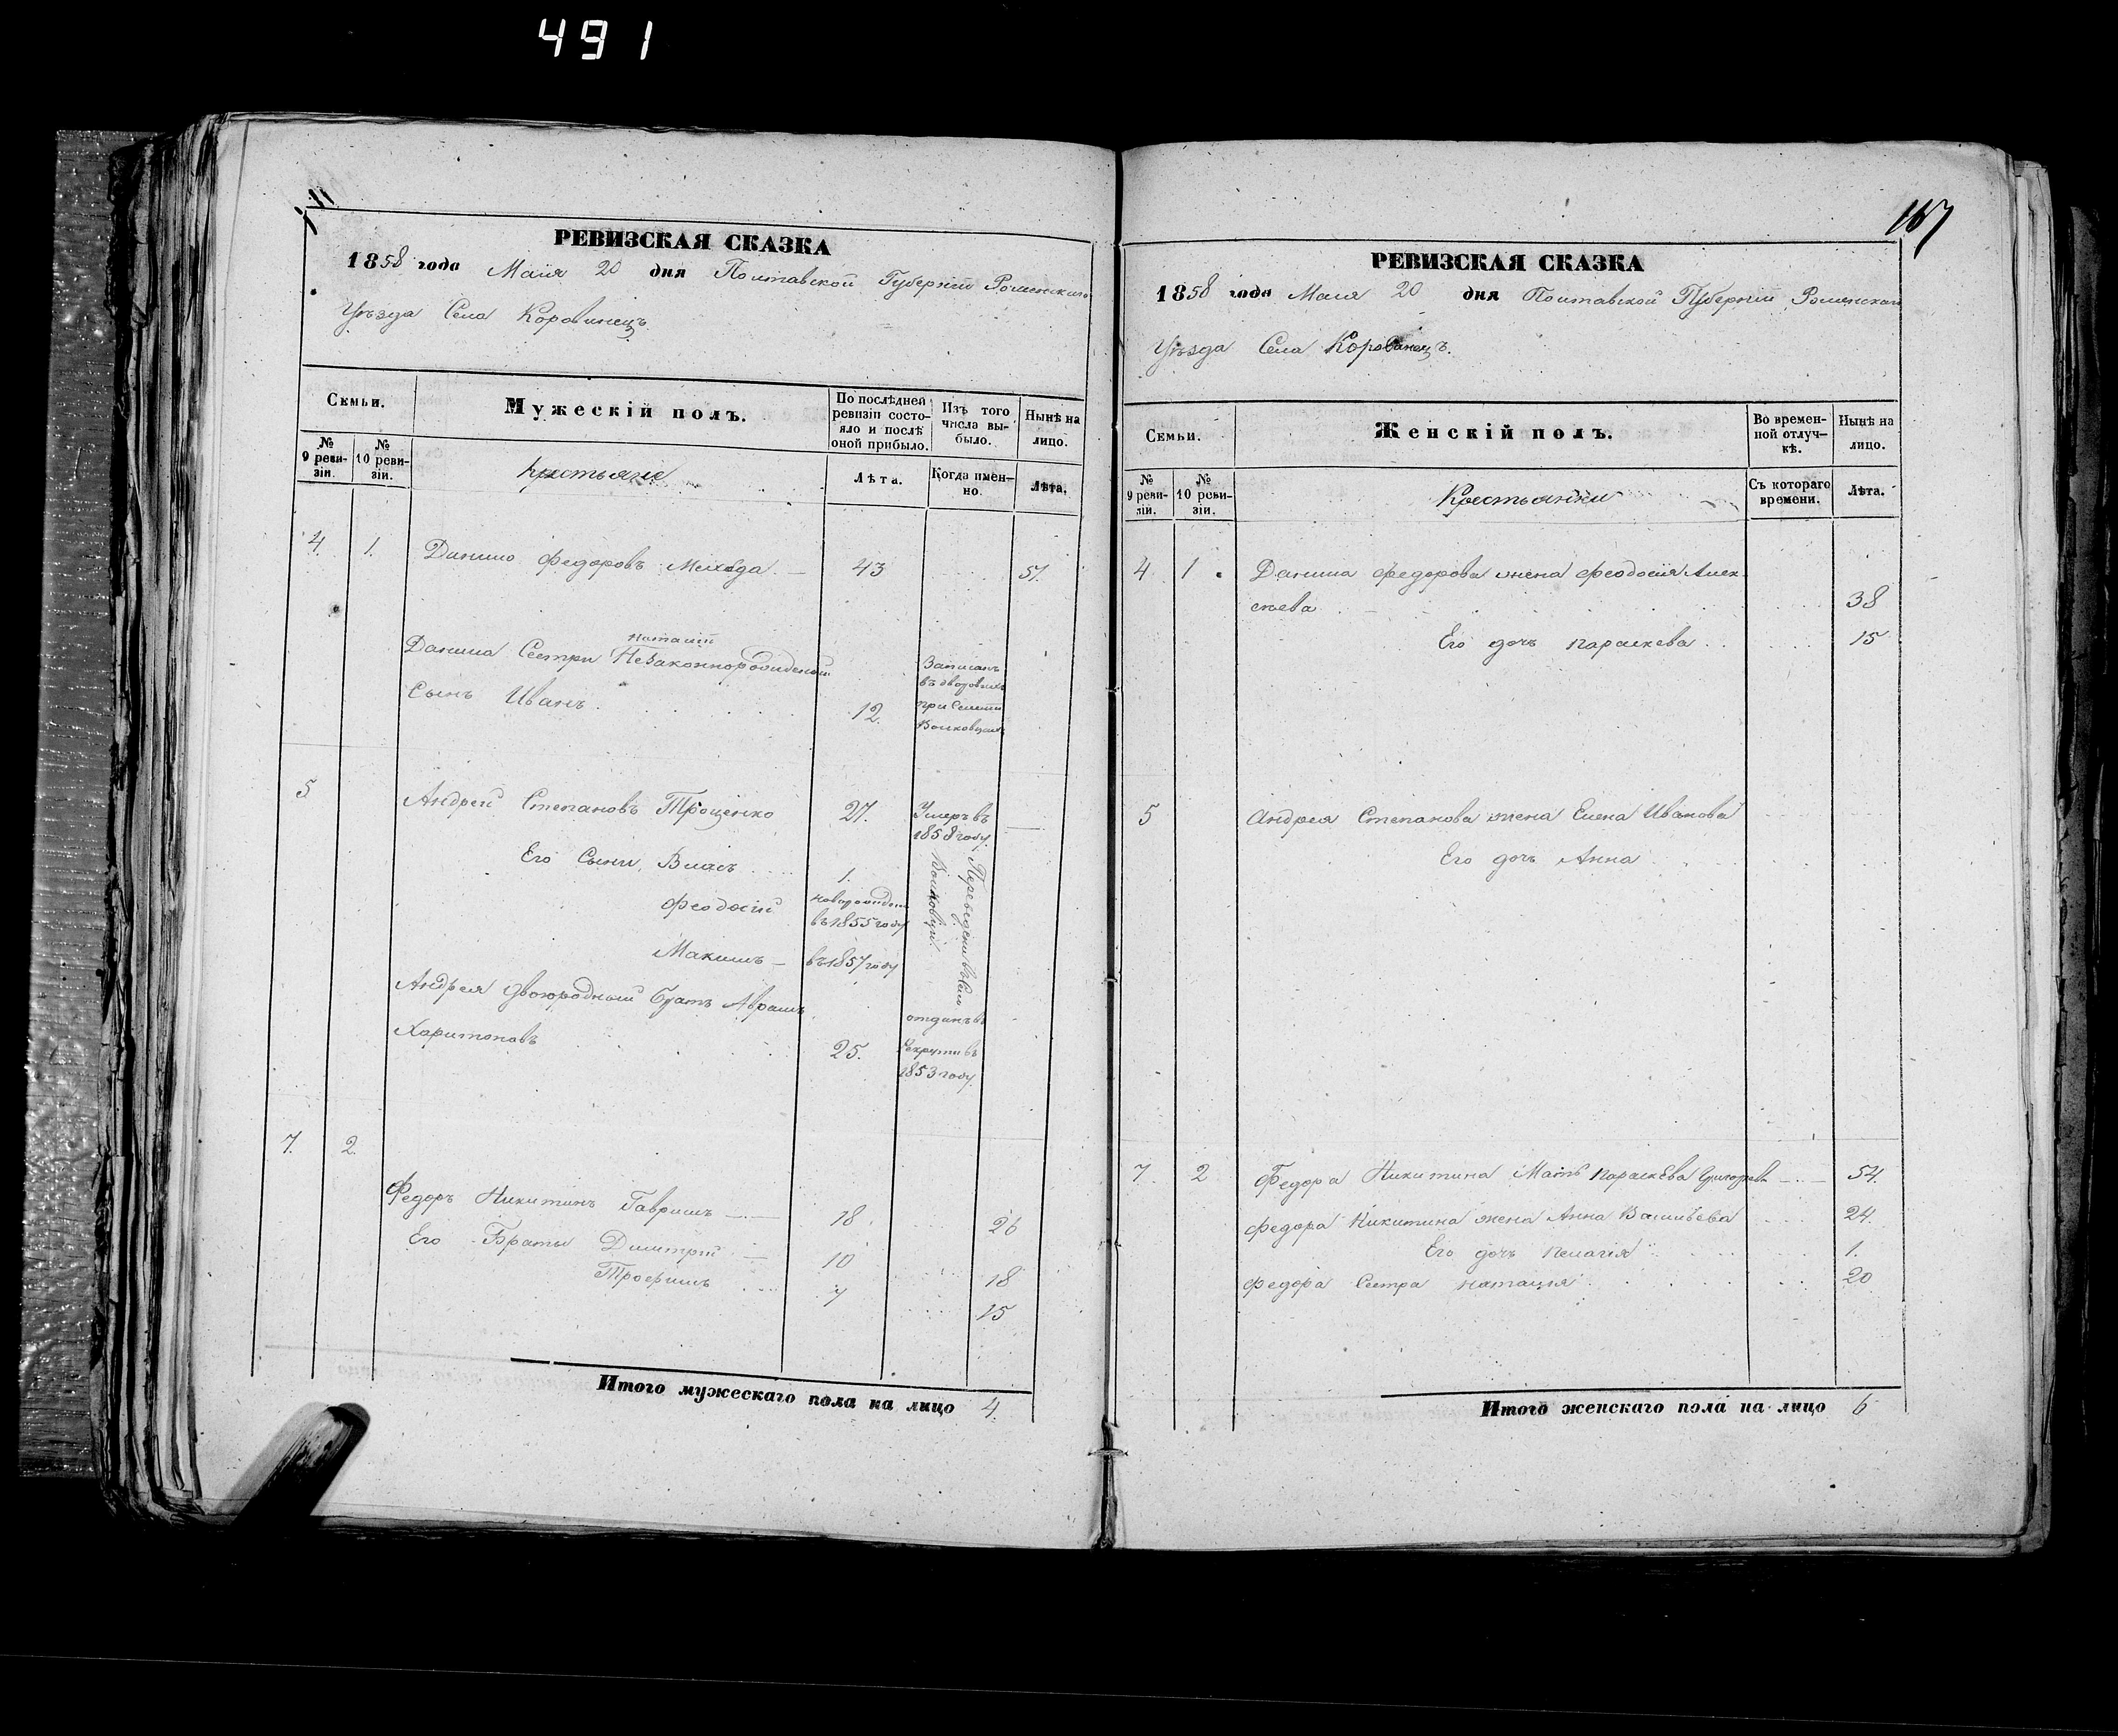 491
11
РЕВИЗСКАЯ СКАЗКА
1858 года Маія 20 дня Полтавской Губерніи Роменскаго
Уѣзда Села Коровинецъ
Семьи.
Мужескій полъ.
По послѣдней ревизіи состояло и послѣ оной прибыло.
Изъ того числа выбыло.
Нынѣ на лицо.
№ 9 ревизіи.
№ 10 ревизіи.
Крестьяне
Лѣта.
Когда именно.
Лѣта.
4 1. Данило Федоровъ 43 57.
Данила Сестри Наталіи Незаконнорожденой
Сынъ Иванъ 12.
Записанъ
въ дворовыхъ
при
5 Андрей Степановъ Троценко 27. Умеръ въ
1858 году.
Его Сыни, Власъ 1.
Феодосій новорожден
въ 1855 году
Максимъ въ 1857 году
Переведени въ село
Андрея двоюродный братъ Аврамъ отданъ въ
Харитоновъ 25. Рекрути въ
1853 году.
7. 2.
Федоръ Никитинъ Гавришъ 18 26
Его Братья Дмитрій 10 18
Трофимъ 7 15
Итого мужескаго пола на лицо 4.
167
РЕВИЗСКАЯ СКАЗКА
1858 года Маія 20 дня Полтавской Губерніи Роменскаго
Уѣзда Села Коровинецъ.
Семьи.
Женскій полъ.
Во временной отлучкѣ.
Нынѣ на лицо.
№ 9 ревизій.
№ 10 ревизіи.
Крестьянки
Съ котораго времени.
Лѣта.
4 1 Данила Федорова жена Феодосія Алек-
сѣева 38
Его дочь Параскева 15
5 Андрея Степанова жена Елена Иванова
Его дочь Анна
7 2 Федора Никитина Мать Параскева Григорьева 54.
Федора Никитина жена Анна Васильева 24.
Его дочь Пелагія 1.
Федора Сестра Наталія 20
Итого женскаго пола на лицо 6